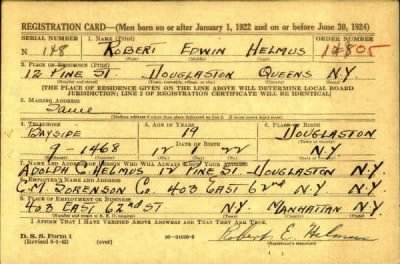 REGISTRATION CARD—(Men born on or after January 1, 1922 and on or before June 30, 1924)
SERIAL NUMBER 1. NAME (Print) ORDER NUMBER
N 148 ROBERT EDWIN HELMUS 12805
(First) (Middle) (Last)
2. PLACE OF RESIDENCE (Print)
12 PINE ST. DOUGLASTON QUEENS N.Y.
(Number and street) (Town, township, village, or city) (County) (State)
[THE PLACE OF RESIDENCE GIVEN ON THE LINE ABOVE WILL DETERMINE LOCAL BOARD
JURISDICTION; LINE 2 OF REGISTRATION CERTIFICATE WILL BE IDENTICAL]
3. MAILING ADDRESS
Same
[Mailing address if other than place indicated on line 2. If same insert word same]
4. TELEPHONE 5. AGE IN YEARS 6. PLACE OF BIRTH
BAYSIDE 19 DOUGLASTON
DATE OF BIRTH
9-1468 12 1 22 N.Y.
7. NAME AND ADDRESS OF PERSON WHO WILL ALWAYS KNOW YOUR ADDRESS
ADOLPH C. HELMUS 12 PINE ST. DOUGLASTON N.Y.
8. EMPLOYER'S NAME AND ADDRESS
C.M. SORENSON CO. 403 EAST 62nd N.Y. N.Y.
9. PLACE OF EMPLOYMENT OR BUSINESS
403 EAST 62nd ST N.Y. MANHATTAN N.Y.
I AFFIRM THAT I HAVE VERIFIED ABOVE ANSWERS AND THAT THEY ARE TRUE.
D. S. S. Form 1
(over)
Robert E. Helmus
(Registrant's signature)